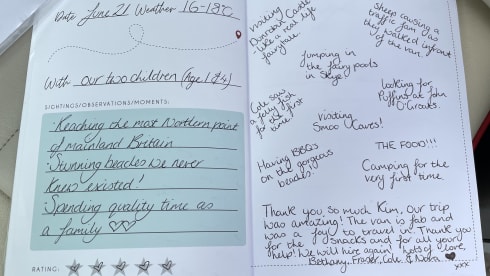 Date June 21 Weather 16-18°C
With our two children (Age 1 & 4)
SIGHTINGS/OBSERVATIONS/MOMENTS:
Reaching the most Northern point
of mainland Britain
Stunning beaches we never
knew existed!
Spending quality time as
a family ♡♡
RATING:
Visiting
Dunrobin Castle
like a real life
fairytale.
Sheep causing a
traffic jam as
they walked infront
of the van.
Jumping in
the fairy pools
in Skye
Cole saw
a jelly fish
for the first
time
Looking for
Puffins at John
O'Groats.
Visiting
Smoo Caves!
Having BBQs
on the gorgeous
beaches.
THE FOOD!!!
Camping for the
very first time
Thank you so much Kim, our trip
was amazing! The van is fab and
was a joy to travel in. Thank you
for the snacks and for all your
help! We will hire again. Lots of love,
Bethany, Fraser, Cole & Nora ♥
xxx